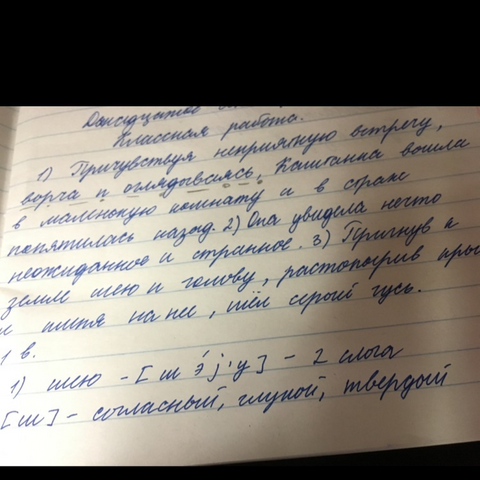 Классная работа.
1) Причувствуя неприятную встречу,
ворча и оглядываясь, Каштанка вошла
в маленькую комнату и в страхе
попятилась назад. 2) Она увидела нечто
неожиданное и странное. 3) Пригнув к
земле шею и голову, растопырив
и шипя на нее, шёл серый гусь.
1 в.
1) шею - [ш э́ j' у] - 2 слога
[ш] - согласный, глухой, твердый